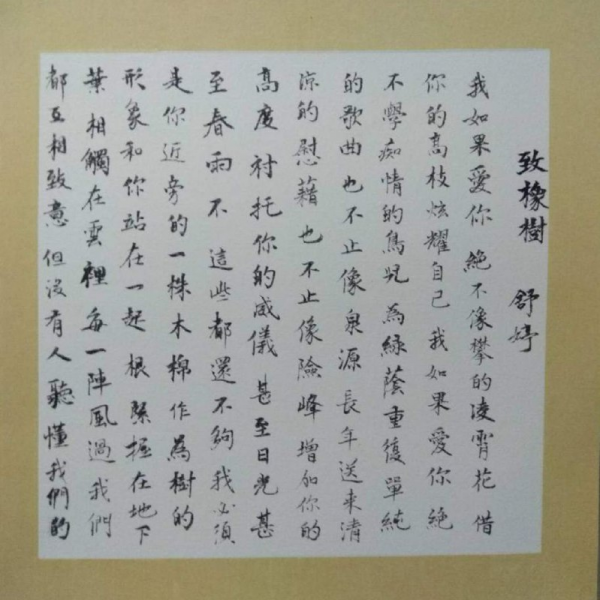 致橡樹 舒婷
我如果愛你 絶不像攀的凌霄花 借
你的高枝炫耀自己 我如果愛你 絶
不學痴情的鳥兒 為綠蔭重復單純
的歌曲 也不止像泉源 長年送來清
涼的慰藉 也不止像險峰 增加你的
高度 衬托你的威儀 甚至日光 甚
至春雨 不 這些都還不夠 我必須
是你近旁的一株木棉 作為樹的
形象和你站在一起 根緊握在地下
葉相觸在雲裡 每一陣風過 我們
都互相致意 但沒有人 聽懂我們的